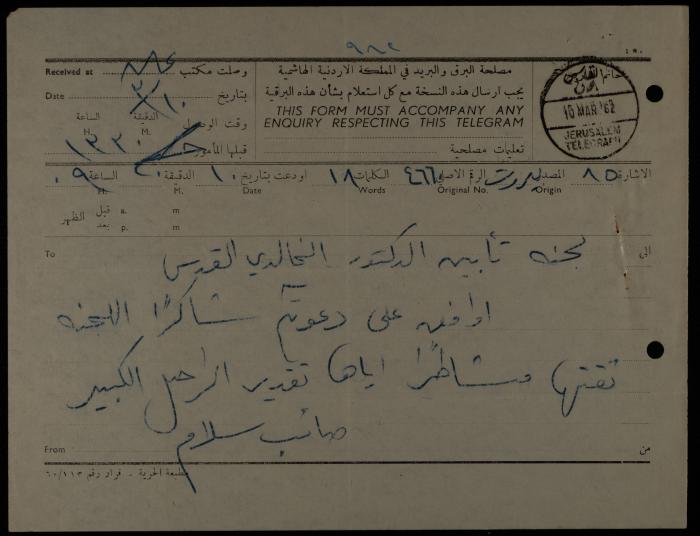 ٩٨٢
مصلحة البرق والبريد في المملكة الاردنية الهاشمية
يجب ارسال هذه النسخة مع كل استعلام بشأن هذه البرقية
THIS FORM MUST ACCOMPANY ANY
ENQUIRY RESPECTING THIS TELEGRAM
تعليمات مصلحية
Received at وصلت مكتب
Date بتاريخ ١٠/٣
الساعة الدقيقة
H. M. وقت الوصول
١٣٢٠ قبلها المأمور
10 MAR '62
JERUSALEM
TELEGRAPH
الاشارة ٨٥ المصدر بيروت الرقم الاصلي ٤٦٦ الكلمات ١٨ اودعت بتاريخ ١٠ الدقيقة الساعة ٠٩
Origin Original No. Words Date M. H.
قبل a. m
الظهر
بعد p. m
To الى
لجنه تأبين الدكتور الخالدي القدس
اوافق على دعوتكم شاكرًا اللجنه
ثقتها مشاطرًا اياها تقدير الراحل الكبير
صائب سلام
From من
مطبعة الحرية - قرار رقم ٦٠/١١٣